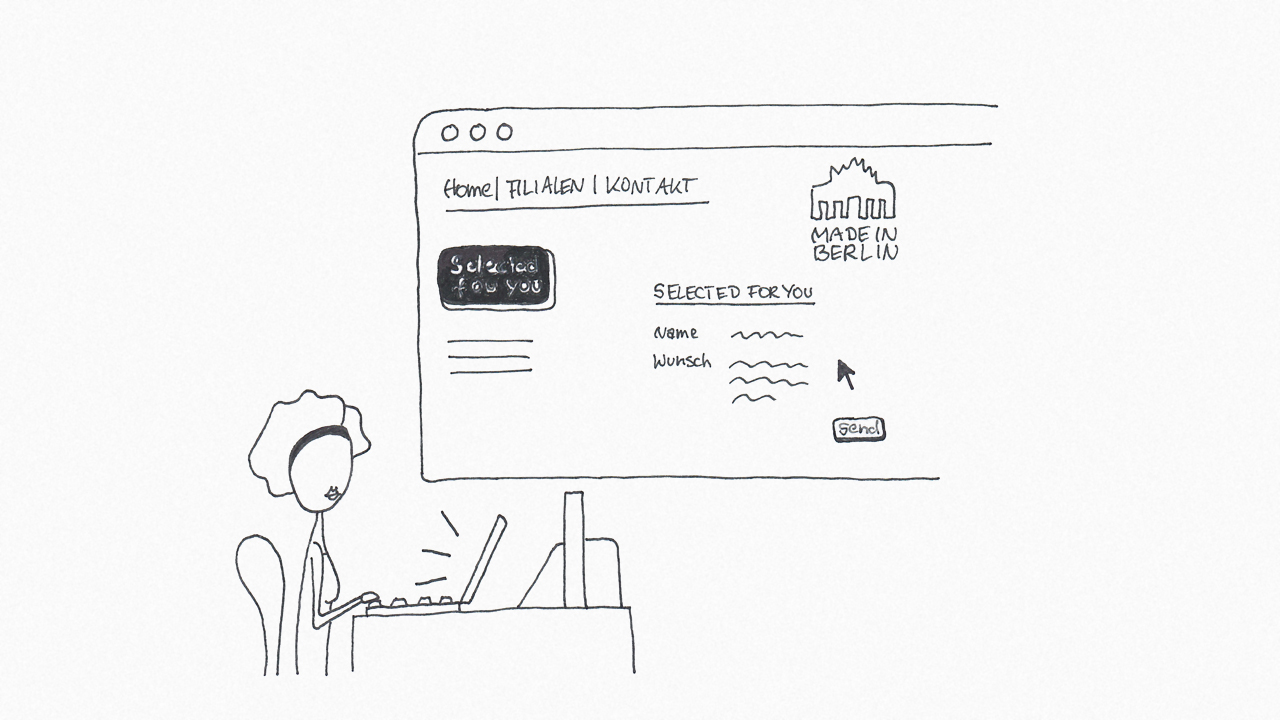 Home | FILIALEN | KONTAKT
MADE IN
BERLIN
Selected
fou you
SELECTED FOR YOU
Name
Wunsch
Send